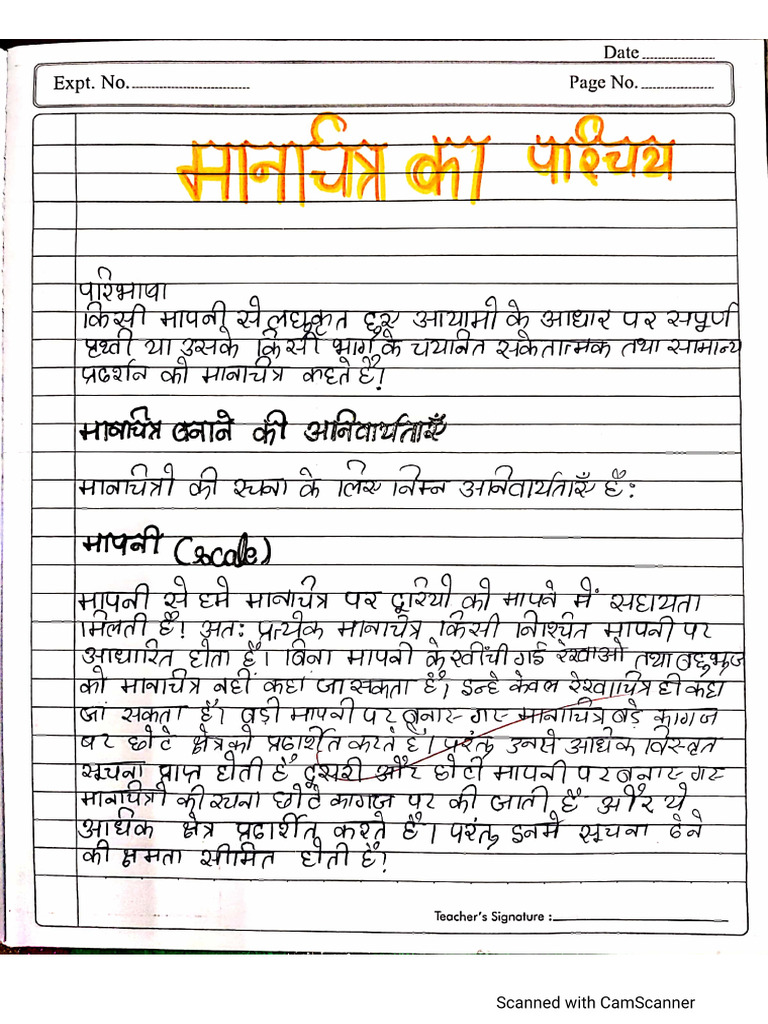 Date
Expt. No.
Page No.
मानचित्र का परिचय
परिभाषा
किसी मापनी से लघुकृत हुए आयामो के आधार पर सपूर्ण
पृथ्वी या उसके किसी भाग के चयनित सकेतात्मक तथा सामान्य
प्रदर्शन को मानाचित्र कहते हैं!
मानचित्र बनाने की अनिवार्यताएँ
मानाचित्रो की रचना के लिए निम्न अनिवार्यताएँ हैं:
मापनी (Scale)
मापनी से हमे मानाचित्र पर दूरियो को मापने में सहायता
मिलती है! अतः प्रत्येक मानाचित्र किसी निश्चित मापनी पर
आधारित होता है। बिना मापनी के खींची गई रेखाओ तथा बहुभुज
को मानाचित्र नहीं कहा जा सकता है, इन्हे केवल रेखाचित्र ही कहा
जा सकता है। बड़ी मापनी पर बनाए गए मानाचित्र बड़े कागज
पर छोटे क्षेत्रको प्रदर्शित करते है। परंतु उनसे अधिक विस्तृत
सूचना प्राप्त होती है दूसरी और छोटी मापनी पर बनाए गए
मानाचित्रो की रचना छोटे कागज पर की जाती है और ये
अधिक क्षेत्र प्रदर्शित करते है। परंतु इनमे सूचना देने
की क्षमता सीमित होती है!
Teacher's Signature :
Scanned with CamScanner